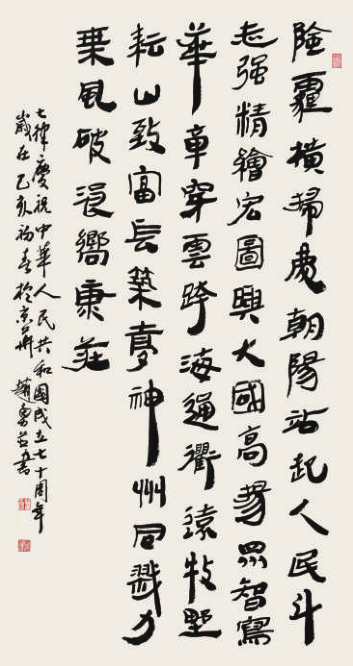 陰霾橫掃慶朝陽站起人民斗
志强精繪宏圖興大國高揚眾智寫
華章穿雲跨海通衢遠牧野
耘山致富長築夢神州同戮力
乘風破浪嚮康莊
七律慶祝中華人民共和國成立七十周年
歲在己亥初春於京華趙書